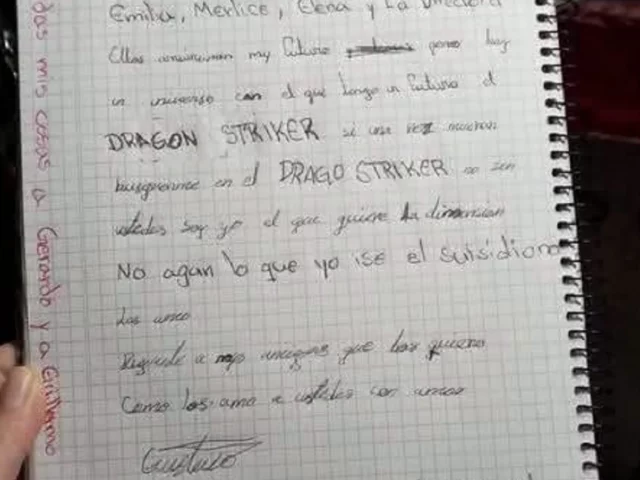 Emilia, Merlice, Elena y La Directora
Ellos arruinaron my futuro pero hay
un universo con el que tengo un futuro el
DRAGON STRIKER si una vez mueran
busquenme en el DRAGO STRIKER no son
ustedes soy yo el que quiere la dimension
No agan lo que yo ise el suisidiono
Los amo
Diganle a mis amigos que los quiero
Como los amo a ustedes con amor
Gustavo
das mis cosas a Gerardo y a Guillermo